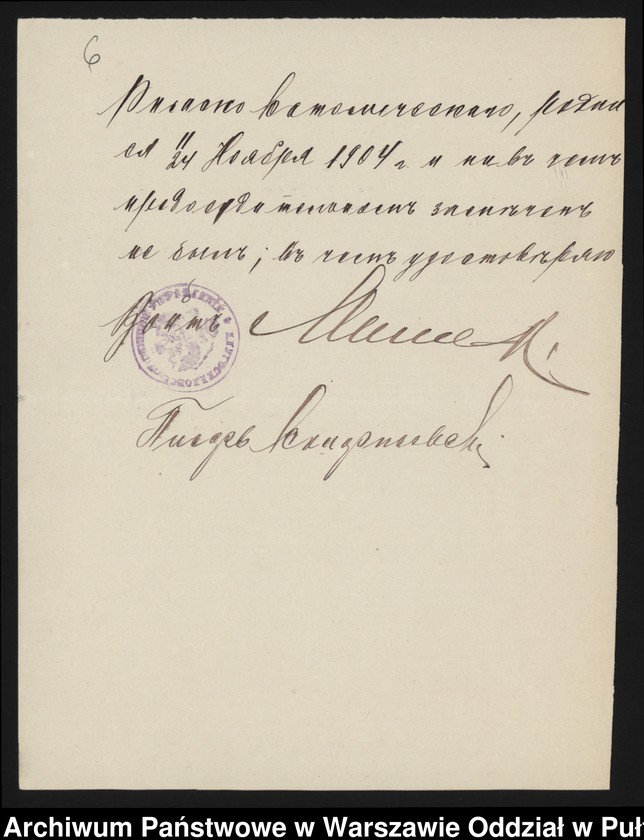 6
Римско Католическаго, родил
ся 11/24 Ноября 1904 г. и ни въ чемъ
предосудительномъ замѣченъ
не былъ; въ чемъ удостовѣряю
Войтъ
Писарь
Archiwum Państwowe w Warszawie Oddział w Puł